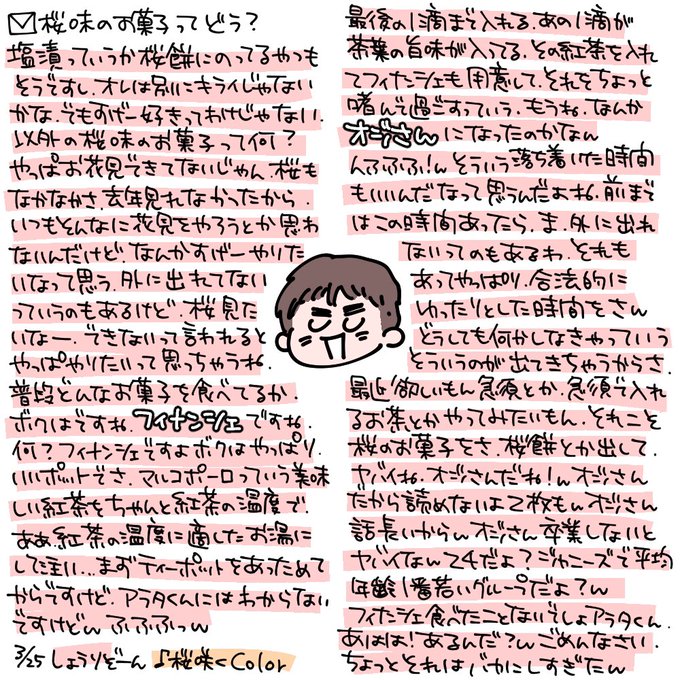 ✉桜味のお菓子ってどう?
塩漬っていうか桜餅にのってるやつも
そうですし、オレは別にキライじゃない
かな。でもすげー好きってわけじゃない.
以外の桜味のお菓子って何?
やっぱお花見できてないじゃん、桜も
なかなかさ、去年見れなかったから.
いつもそんなに花見をやろうとか思わ
ないんだけど、なんかすげーやりた
いなって思う、外に出れてない
っていうのもあるけど、桜見た
いなー、できないって言われると
やっぱやりたいって思っちゃうね.
普段どんなお菓子を食べてるか.
ボクはですね、フィナンシェですね.
何?フィナンシェですよボクはやっぱり.
いいポットでさ、マルコポーロっていう美味
しい紅茶をちゃんと紅茶の温度で.
ああ紅茶の温度に適したお湯に
して注い…まずティーポットをあっためて
からですけど、アラタくんにはわからない
ですけどw ふふふっw
3/25 しょうりどーん ♪桜咲くColor
最後の1滴まで入れる、あの1滴が
茶葉の旨味が入ってる、その紅茶を入れ
てフィナンシェも用意して、それをちょっと
嗜んで過ごすっていう、もうね、なんか
オジさんになったのかなw
んふふふ!w そういう落ち着いた時間
もいいんだなって思うんだよね、前まで
はこの時間あったら、ま、外に出れ
ないってのもあるわ、それも
あってやっぱり、合法的に
ゆったりとした時間をさん
どうしても何かしなきゃっていう
とういうのが出てきちゃうからさ.
最近欲しいもん急須とか、急須で入れ
るお茶とかやってみたいもん、それこそ
桜のお菓子をさ、桜餅とか出して.
ヤバイね、オジさんだね!w オジさん
だから読めないよ2枚もw オジさん
話長いからw オジさん卒業しないと
ヤバイなw 24だよ?ジャニーズで平均
年齢1番若いグループだよ?w
フィナンシェ食べたことないでしょアラタくん.
あはは!あるんだ?w ごめんなさい.
ちょっとそれはバカにしすぎたw